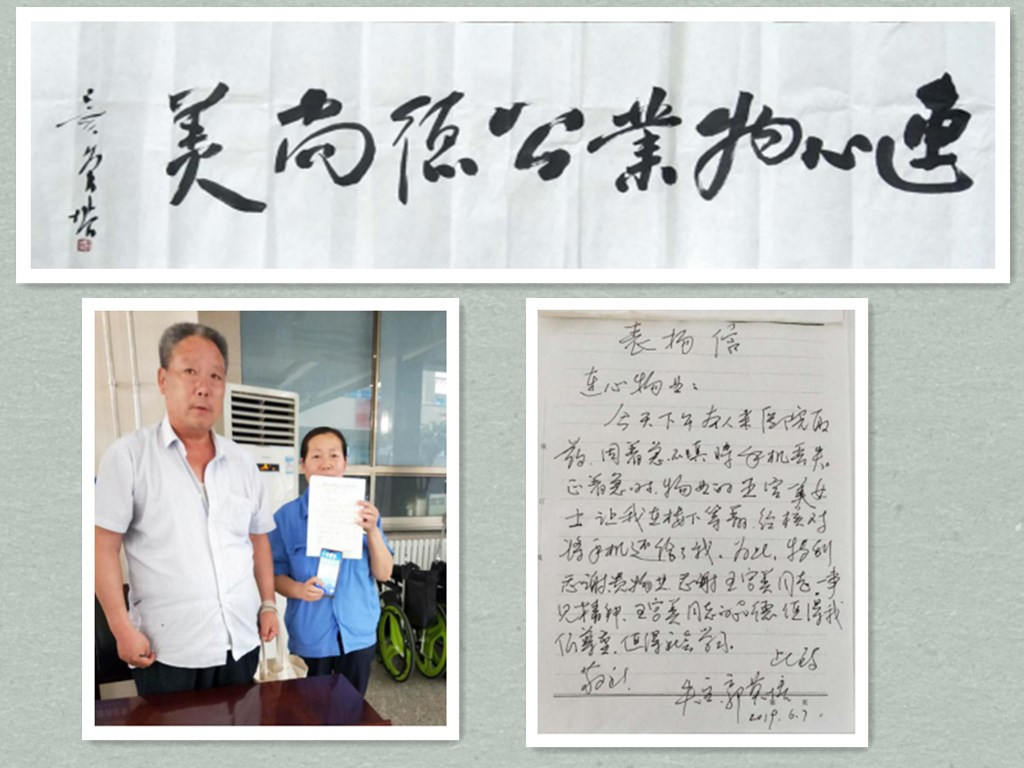 連心物業公德尚美
表扬信
连心物业：
今天下午本人来医院取
药，因着急不慎将手机丢失，
正着急时，物业的王美女
士让我在楼下等着，给核对
将手机还给了我。为此，特别
感谢贵物业，感谢王美同志，一事
见精神，王美同志的品德值得我
们尊重，值得社会学习。
此致
敬礼！
失主：郭英
2019.6.7.